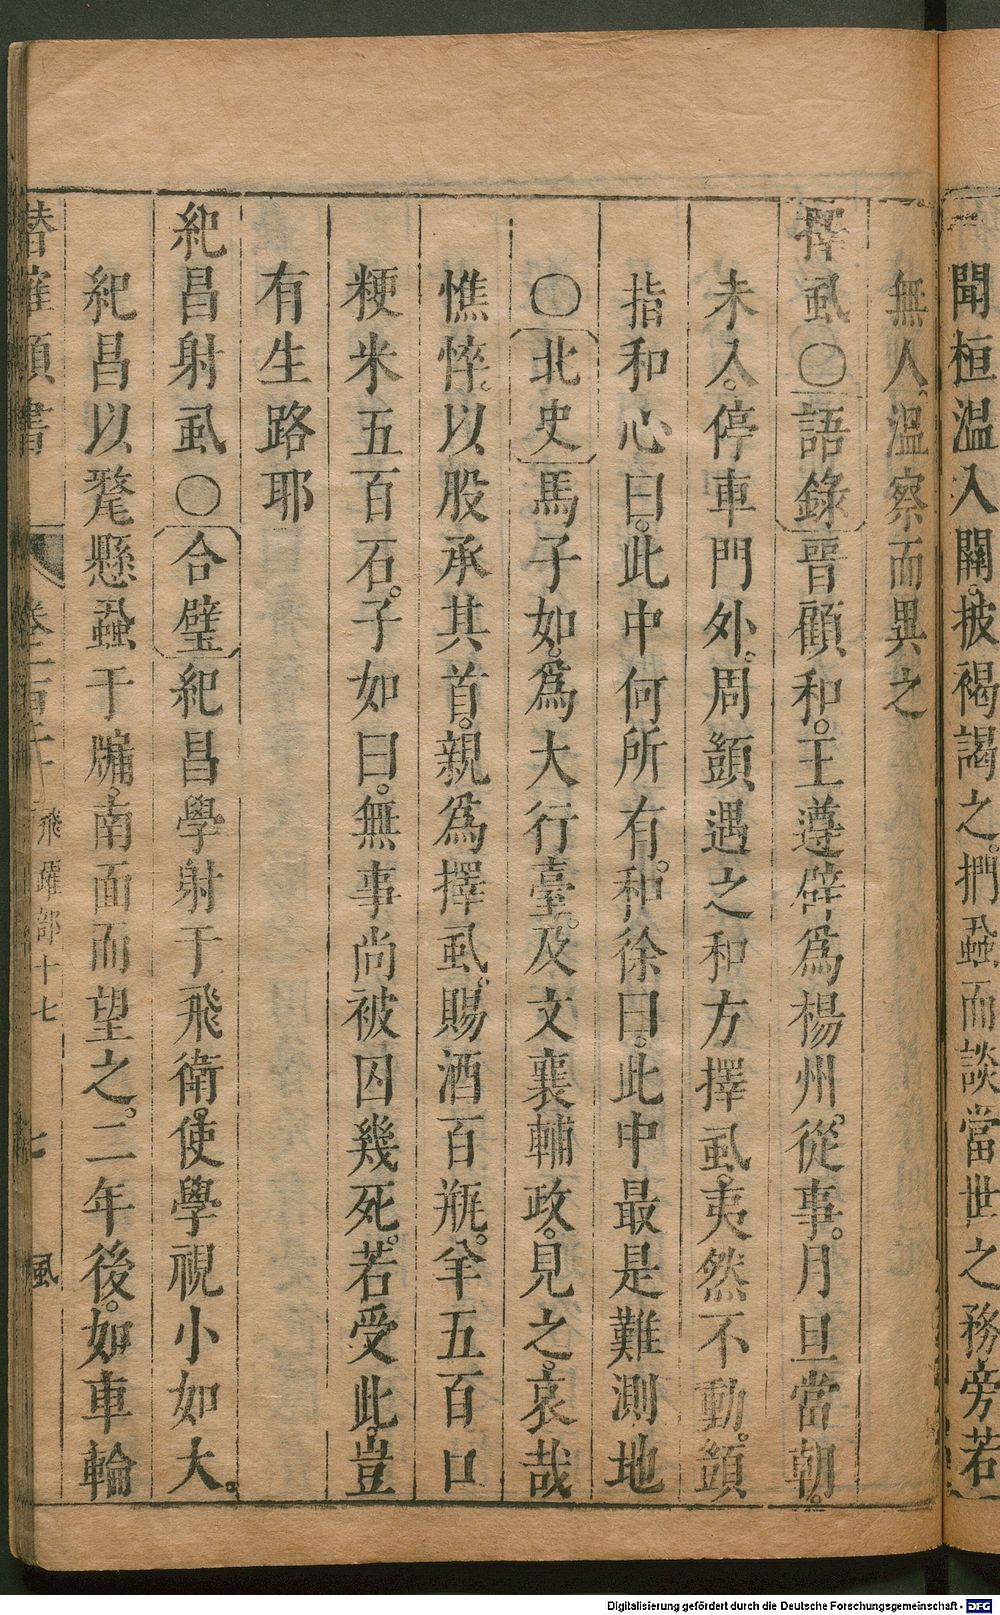 聞桓溫入關。披褐謁之。捫蝨而談當世之務旁若
無人。溫察而異之
擇虱〇語錄晉顧和。王遵辟爲楊州。從事。月旦當朝。
未入。停車門外。周顗遇之和方擇虱。夷然不動。顗
指和心曰。此中何所有。和徐曰。此中最是難測地
〇北史馬子如。爲大行臺。及文襄輔政。見之。哀哉
憔悴。以股承其首。親爲擇虱。賜酒百瓶。羊五百口
粳米五百石。子如曰。無事尚被囚幾死。若受此。豈
有生路耶
紀昌射虱〇合璧紀昌學射于飛衛。使學視小如大。
紀昌以氂懸蝨于牖。南面而望之。二年後。如車輪
潛確類書 卷一百二十 飛躍部十七 七 風
Digitalisierung gefördert durch die Deutsche Forschungsgemeinschaft - DFG